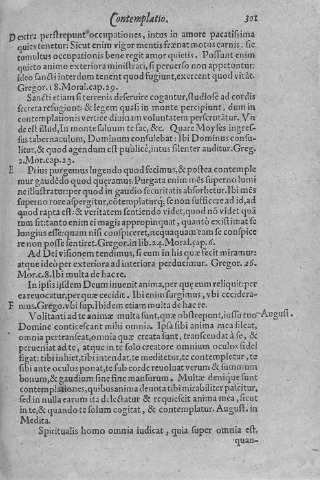 Contemplatio. 301
D extra perstrepunt occupationes, intus in amore pacatissima
quies tenetur: Sicut enim vigor mentis frænat motus carnis. sic
tumultus occupationis bene regit amor quietis. Possunt enim
quieto animo exteriora ministrari, si peruerso non appetuntur:
ideo sancti interdum tenent quod fugiunt, exercent quod vitāt.
Gregor. 18. Moral. cap. 29.
Sancti etiam si terrenis deseruire cogantur, studiosè ad cordis
secreta refugiunt: & legem quasi in monte percipiunt, dum in
contemplationis vertice diuinam voluntatem perscrutātur. Vn
de est illud, In monte saluum te fac, &c. Quare Moyses ingres-
sus tabernaculum, Dominum consulebat: Ibi Dominus consu-
litur, & quod agendum est publicè, intus silenter auditur. Greg.
2. Mor. cap. 23.
E Prius purgemus lugendo quod fecimus, & postea contemple
mur gaudēdo quod queramus. Purgata enim mēs superno lumi
ne illustratur: per quod in gaudio securitatis absorbetur. Ibi mēs
superno rore aspergitur, cōtemplaturq; se non sufficere ad id, ad
quod rapta est: & veritatem sentiendo videt, quod nō videt quā
tum sit: tanto enim ei magis appropinquat, quantò existimat se
longius esse: quam nisi conspiceret, nequaquam eam se conspice
re non posse sentiret. Gregor. in lib. 24. Moral. cap. 6.
Ad Dei visionem tendimus, si eum in his quæ fecit miramur:
atque ideo per exteriora ad interiora perducimur. Gregor. 26.
Mor. c. 8. Ibi multa de hac re.
In ipsis ijsdem Deum inuenit anima, per quæ eum reliquit: per
ea reuocatur, per quæ cecidit. Ibi enim surgimus, vbi cecidera-
F mus. Grego. vbi sup. Ibidem etiam multa de hac re.
Volitanti ad te animæ multa sunt, quæ obstrepunt, iussu tuo August.
Domine conticescant mihi omnia. Ipsa sibi anima mea sileat,
omnia pertranseat, omnia quæ creata sunt, transcendat à se, &
perueniat ad te, atque in te solo creatore omnium oculos fidei
figat: tibi inhiet, tibi intendat, te meditetur, te contempletur, te
sibi ante oculos ponat, te sub corde reuoluat verum & summum
bonum, & gaudium sine fine mansurum. Multæ denique sunt
contemplationes, quibus anima deuota tibi mirabiliter pascitur,
sed in nulla earum ita delectatur & requiescit anima mea, sicut
in te, & quando te solum cogitat, & contemplatur. August. in
Medita.
Spiritualis homo omnia iudicat, quia super omnia est,
quan-